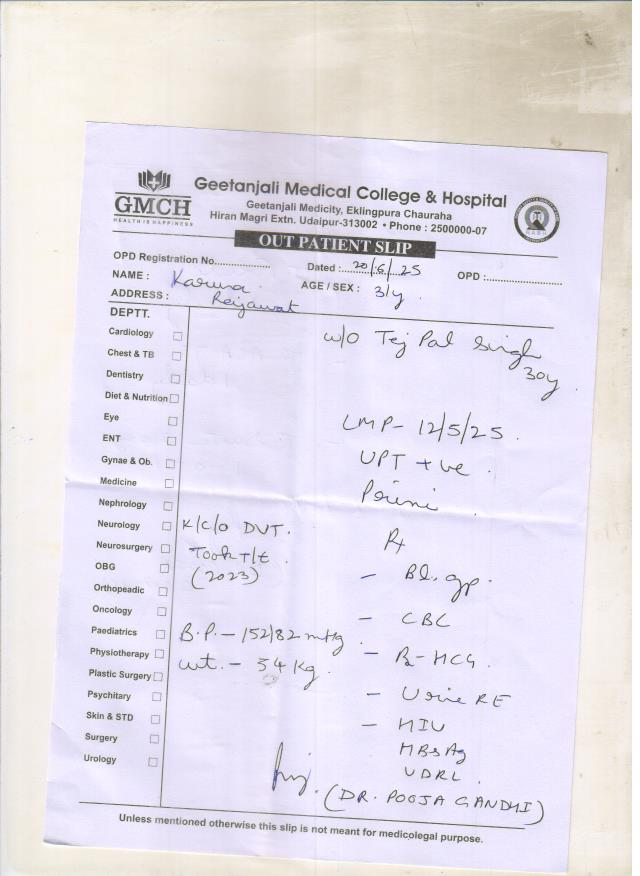 GMCH
HEALTH IS HAPPINESS
Geetanjali Medical College & Hospital
Geetanjali Medicity, Eklingpura Chauraha
Hiran Magri Extn. Udaipur-313002 • Phone : 2500000-07
OUT PATIENT SLIP
OPD Registration No.................... Dated : 20/6/25 OPD :........................
NAME : Karuna AGE / SEX : 31y
ADDRESS : Rajawat
DEPTT.
w/o Tej Pal Singh
30y
Cardiology
Chest & TB
Dentistry
Diet & Nutrition
Eye
ENT
Gynae & Ob.
Medicine
Nephrology
Neurology
Neurosurgery
OBG
Orthopeadic
Oncology
Paediatrics
Physiotherapy
Plastic Surgery
Psychitary
Skin & STD
Surgery
Urology
K/C/O DVT.
Took T/t.
(2023)
B.P. - 152/82 mHg
wt. - 54 kg.
LMP - 12/5/25.
UPT +ve.
Primi
Rx
- Bl. gp.
- CBC
- B-HCG.
- Urine RE
- HIV
HBsAg
VDRL.
(DR. POOJA GANDHI)
Unless mentioned otherwise this slip is not meant for medicolegal purpose.